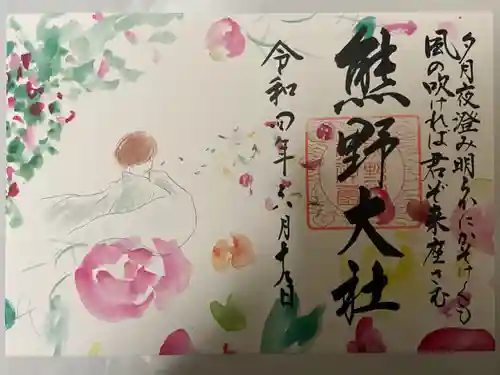 夕月夜澄み明らかにかそけくも
風の吹ければ君ぞ来座さむ
熊野大社
令和四年六月十九日